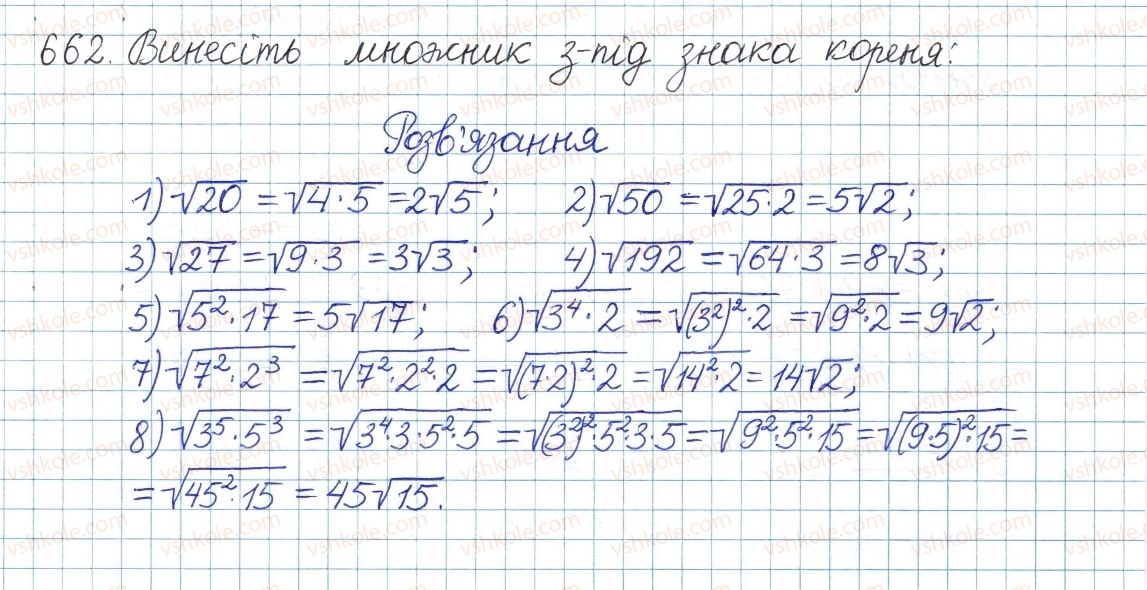 662. Винесіть множник з-під знака кореня:
Розв'язання
1) √20 = √(4·5) = 2√5; 2) √50 = √(25·2) = 5√2;
3) √27 = √(9·3) = 3√3; 4) √192 = √(64·3) = 8√3;
5) √(5²·17) = 5√17; 6) √(3⁴·2) = √((3²)²·2) = √(9²·2) = 9√2;
7) √(7²·2³) = √(7²·2²·2) = √((7·2)²·2) = √(14²·2) = 14√2;
8) √(3⁵·5³) = √(3⁴·3·5²·5) = √((3²)²·5²·3·5) = √(9²·5²·15) = √((9·5)²·15) =
= √(45²·15) = 45√15.